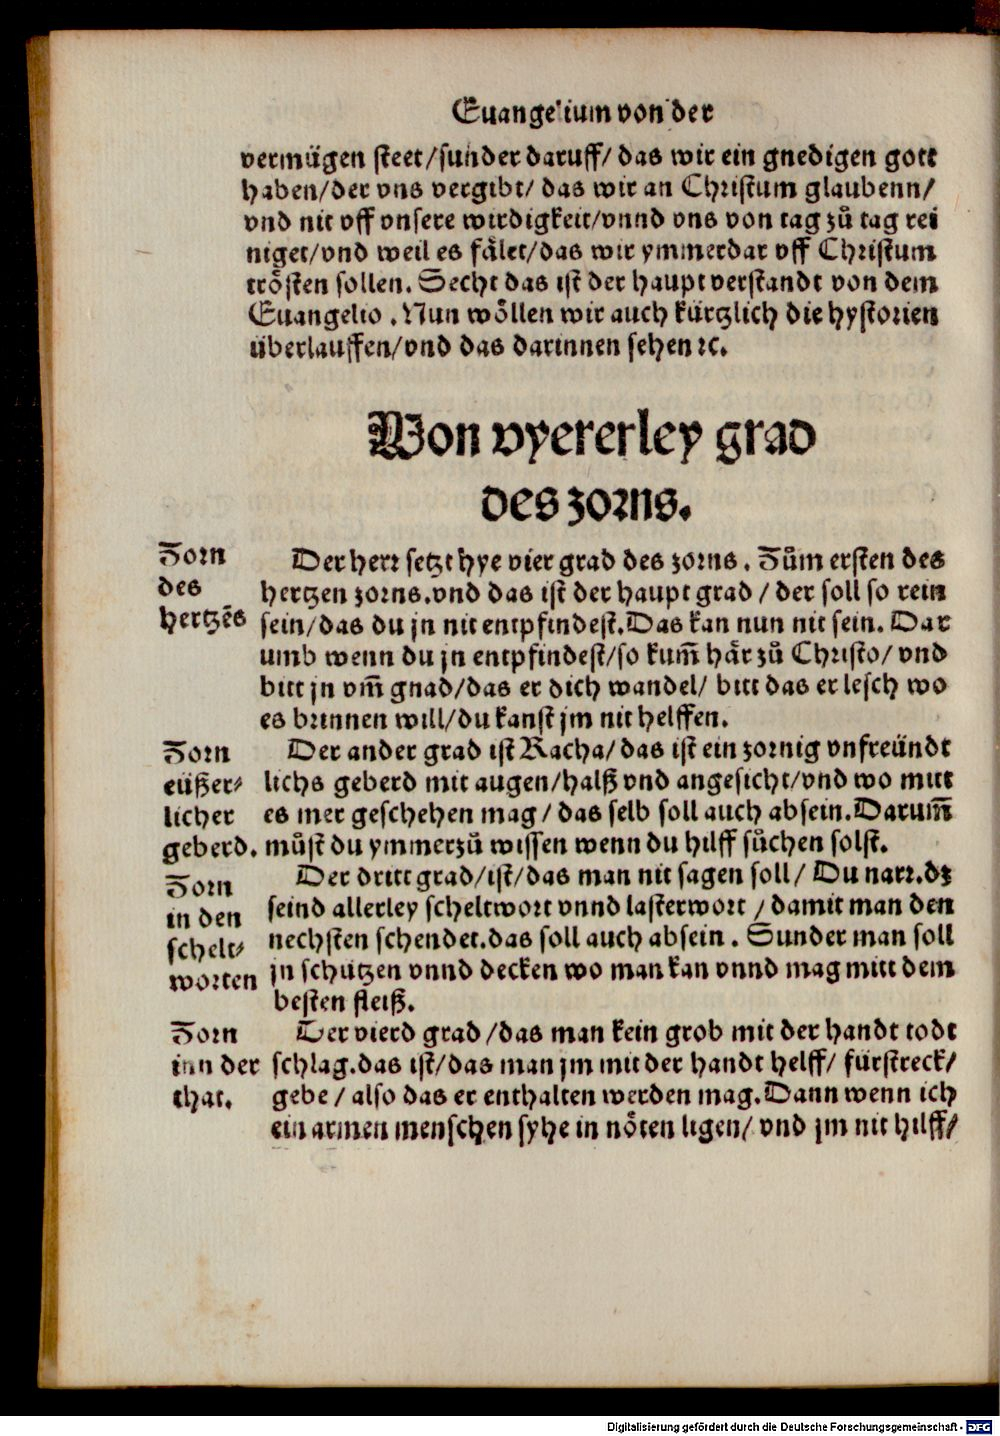 Euangelium von der
vermügen steet/sunder daruff/ das wir ein gnedigen gott
haben/der vns vergibt/ das wir an Christum glaubenn/
vnd nit vff vnsere wirdigkeit/vnnd vns von tag zů tag rei
niget/vnd weil es fålet/das wir ymmerdar vff Christum
trôsten sollen. Secht das ist der haupt verstandt von dem
Euangelio . Nun wôllen wir auch kürtzlich die hystorien
überlauffen/vnd das darinnen sehen ꝛc.
Won vyererley grad
des zorns.
Zorn
des
hertzēs
Der herr setzt hye vier grad des zorns . Zům ersten des
hertzen zorns.vnd das ist der haupt grad / der soll so rein
sein/das du jn nit entpfindest.Das kan nun nit sein. Dar
umb wenn du jn entpfindest/so kum̃ hår zů Christo/ vnd
bitt jn vm̃ gnad/das er dich wandel/ bitt das er lesch wo
es brinnen will/du kanst jm nit helffen.
Zorn
eüßer⸗
licher
geberd.
Der ander grad ist Racha/das ist ein zornig vnfreündt
lichs geberd mit augen/halß vnd angesicht/vnd wo mitt
es mer geschehen mag / das selb soll auch absein.Darum̃
můst du ymmerzů wissen wenn du hilff sůchen solst.
Zorn
in den
schelt⸗
worten
Der dritt grad/ist/das man nit sagen soll/ Du narr.dz
seind allerley scheltwort vnnd lasterwort / damit man den
nechsten schendet.das soll auch absein . Sunder man soll
jn schützen vnnd decken wo man kan vnnd mag mitt dem
besten fleiß.
Zorn
inn der
that.
Der vierd grad /das man kein grob mit der handt todt
schlag.das ist/das man jm mit der handt helff/ fürstreck/
gebe / also das er enthalten werden mag.Dann wenn ich
ein armen menschen syhe in nôten ligen/ vnd jm nit hilff/
Digitalisierung gefördert durch die Deutsche Forschungsgemeinschaft - DFG